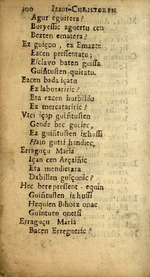 100 IESVS-CHRISTOREN
Agur eguitera?
Buryeſſic aguertu cen
Bezten emacera?
Ez guiçon, ez Emazte
Ezcen preſentatu;
Eſclavo baten guiſſa
Guiñtuſten quietatu.
Ezcen bada içatu
Ez laborariric?
Eta ezcen hurbildu
Ez mercatariric?
Vici içap guiñtuſten
Gende hec guciec,
Ez guiñtuſten ikhuſſi
Hain gutti handiec,
Erraguçu Maria
Içan cen Arçaiñic
Eta mendietara
Dabillan guiçonic?
Hec bere preſent-equin
Guiñtuſten ikhuſſi
Hequien Bihotz onac
Guintuen onetſi
Erraguçu Maria
Bacen Erregueric?